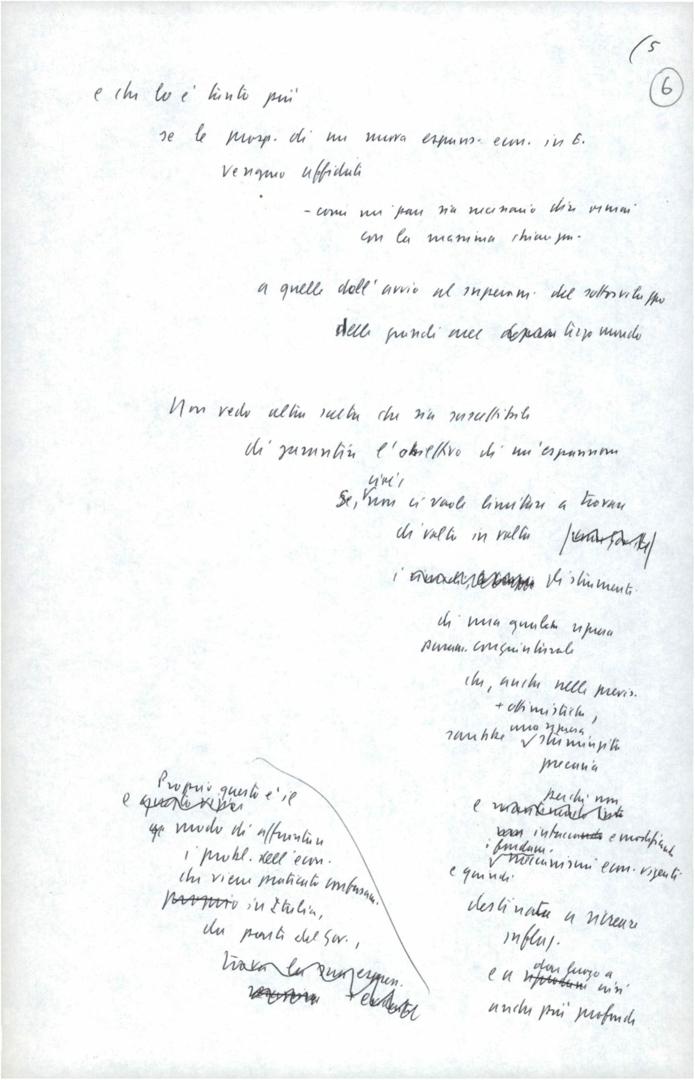 (5
6
e che lo è tanto più
se le prosp. di una nuova espans. econ. in E.
vengano affidate
- come mi pare sia necessario dire ormai
con la massima chiarezza -
a quelle dell'avvio al superam. del sottosviluppo
delle grandi aree terzo mondo
Non vedo altra scelta che sia suscettibile
di garantire l'obiettivo di un'espansione
cioè,
Se, non ci vuole limitare a trovare
di volta in volta
i strumenti
di una qualche ripresa
puram. congiunturale
che, anche nelle previs.
+ ottimistiche,
una ripresa
sarebbe stiminzita
precaria
perché non
e
intacca e modifica
i fondam.
meccanismi econ. vigenti
e quindi
destinata a ricreare
inflaz.
dar luogo a
e a crisi
anche più profonde
Proprio questo è il
e
modo di affrontare
i probl. dell'econ.
che viene praticato
in Italia,
da parte del Gov.,
trova la sua espress.